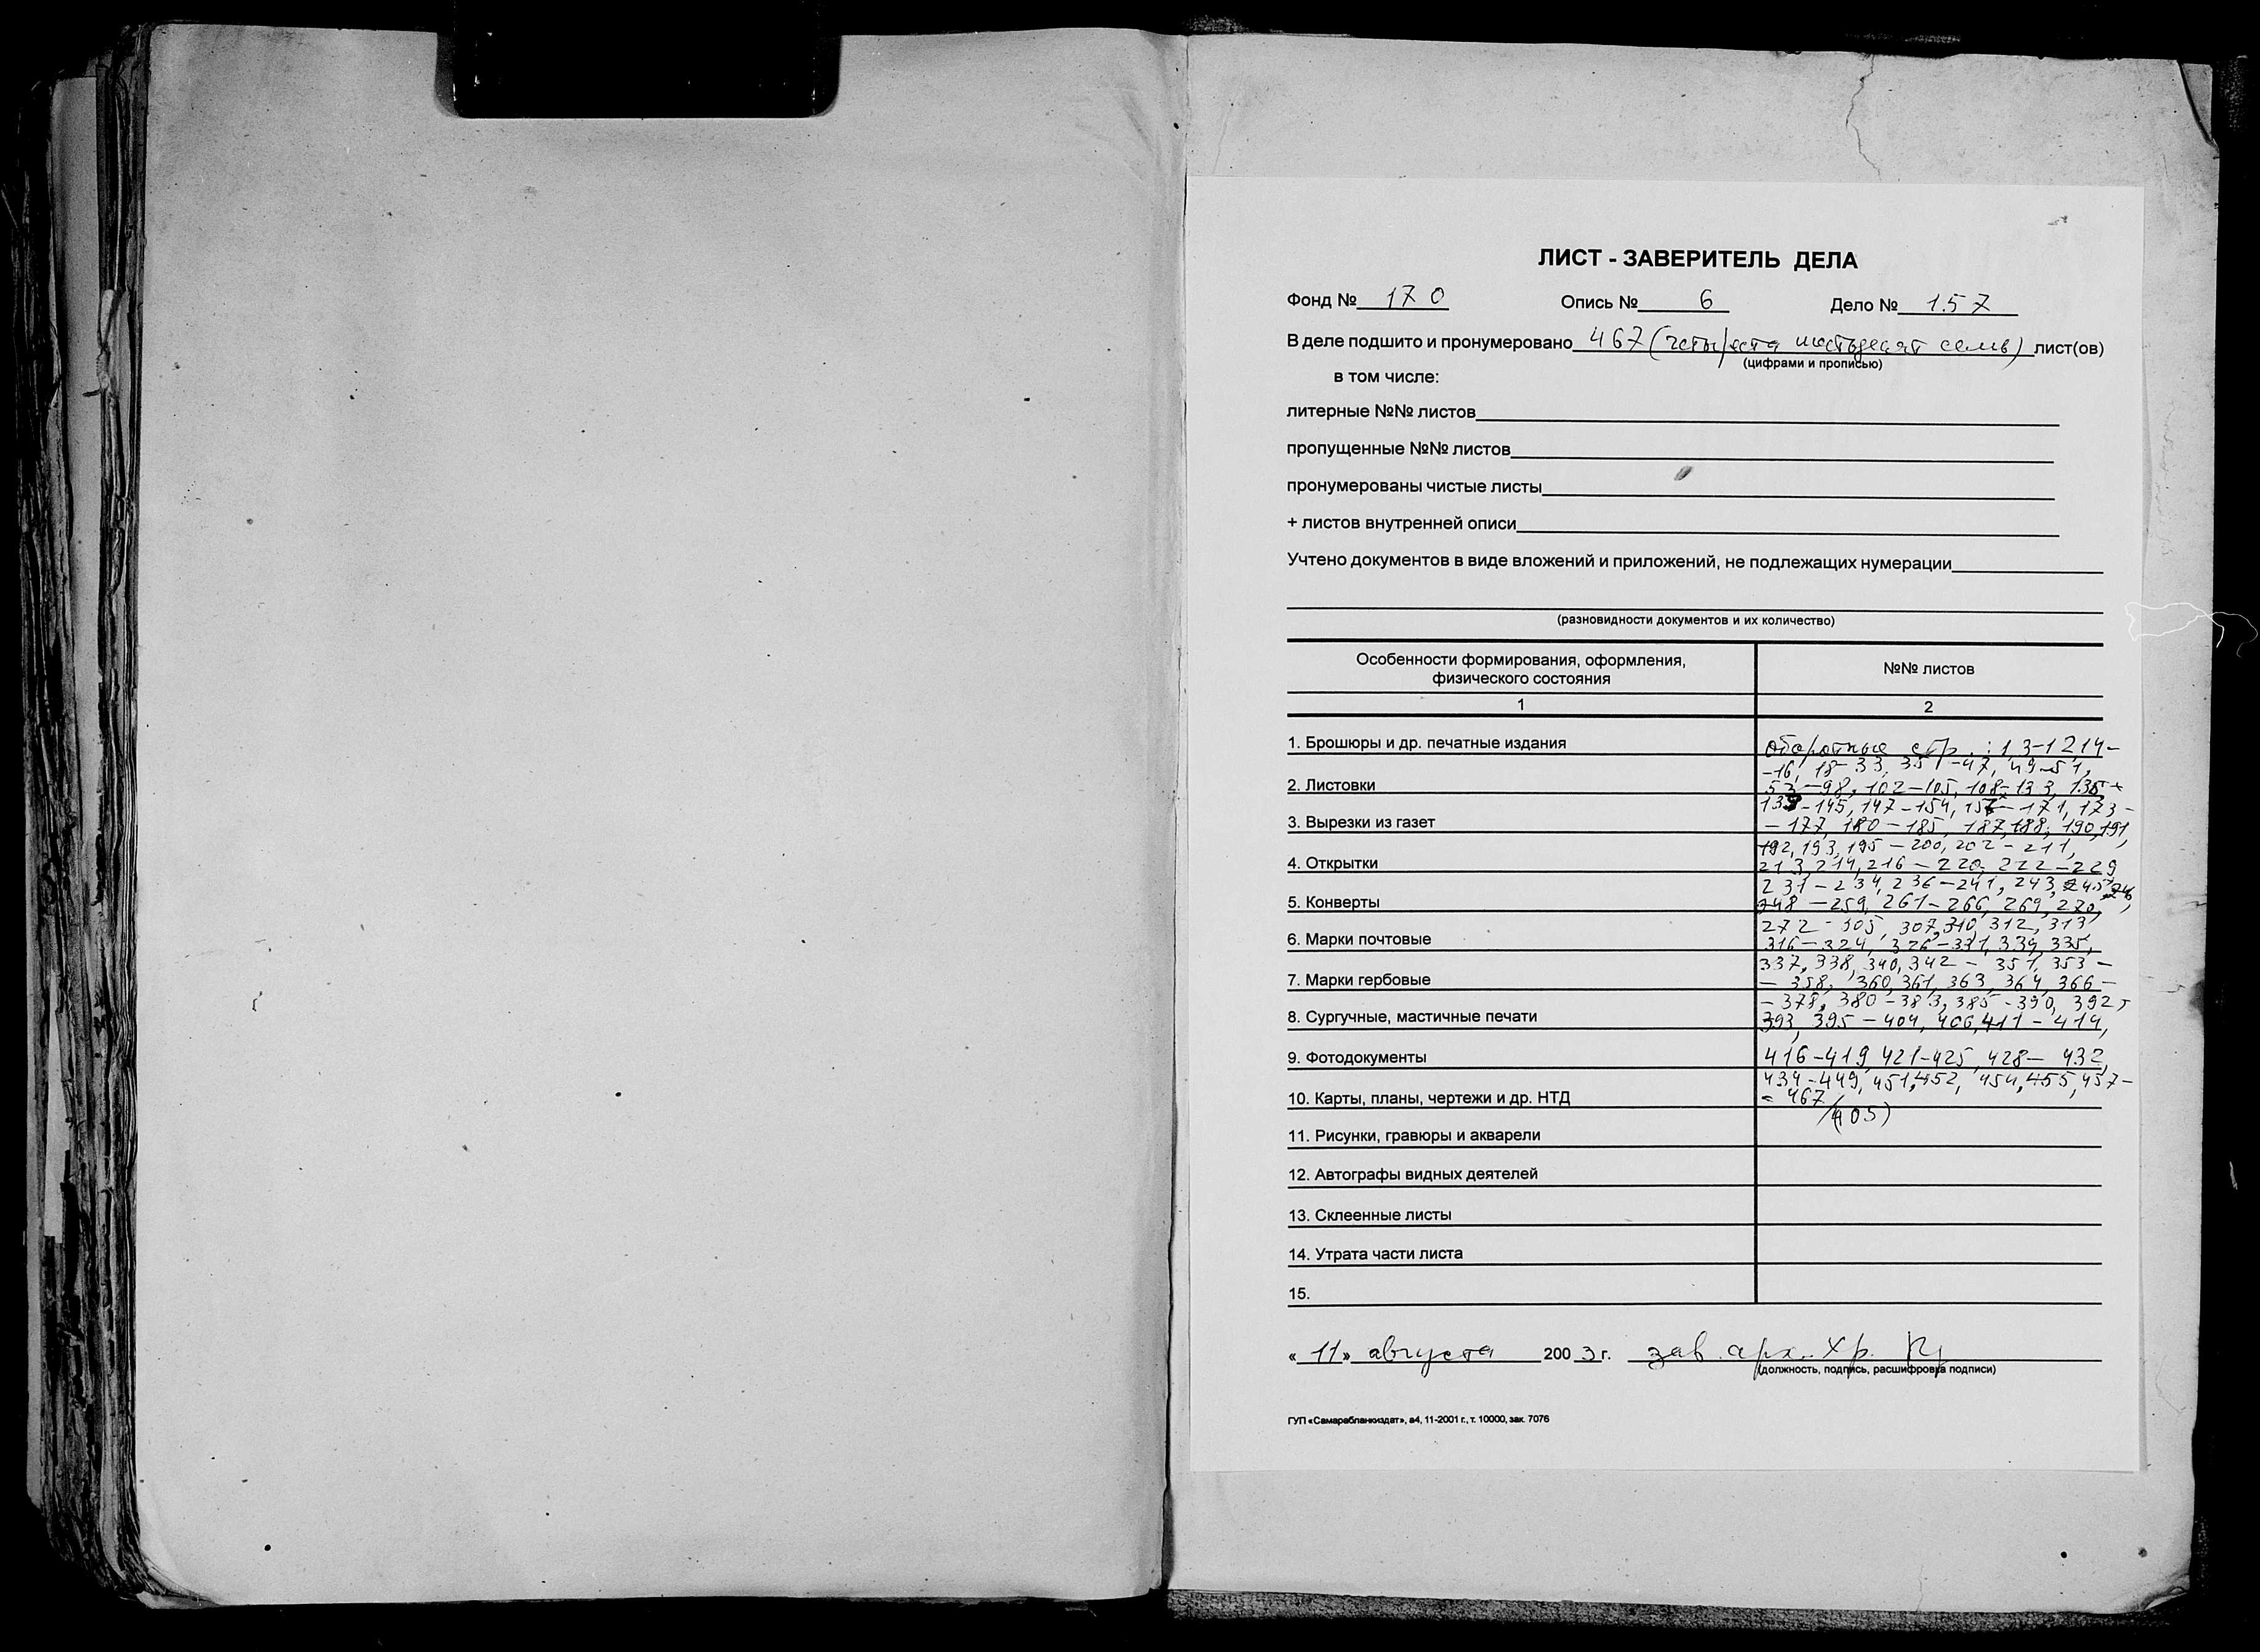 ЛИСТ - ЗАВЕРИТЕЛЬ ДЕЛА
Фонд № 170 Опись № 6 Дело № 157
В деле подшито и пронумеровано 467 (четыреста шестьдесят семь) лист(ов)
(цифрами и прописью)
в том числе:
литерные №№ листов
пропущенные №№ листов
пронумерованы чистые листы
+ листов внутренней описи
Учтено документов в виде вложений и приложений, не подлежащих нумерации
(разновидности документов и их количество)
Особенности формирования, оформления, №№ листов
физического состояния
1 2
1. Брошюры и др. печатные издания оборотные стр.: 1, 3-12 14-
-16, 18-33, 35-47, 49-51,
2. Листовки 53-98, 102-105, 108-133, 135
139-145, 147-154, 157-171, 173-
3. Вырезки из газет - 177, 180-185, 187, 188, 190, 191,
192, 193, 195-200, 202-211,
4. Открытки 213, 214, 216-220, 222-229
231-234, 236-241, 243, 245
5. Конверты 248-259, 261-266, 269, 270,
272-305, 307, 310, 312, 313,
6. Марки почтовые 316-324, 326-331, 335,
337, 338, 340, 342-351, 353-
7. Марки гербовые - 358, 360, 361, 363, 364, 366-
- 378, 380-383, 385-390, 392,
8. Сургучные, мастичные печати 393, 395-404, 406, 411-414,
9. Фотодокументы 416-419, 421-425, 428-432,
434-449, 451, 452, 454, 455, 457-
10. Карты, планы, чертежи и др. НТД - 467
(405)
11. Рисунки, гравюры и акварели
12. Автографы видных деятелей
13. Склеенные листы
14. Утрата части листа
15.
« 11 » августа 2003 г. зав. арх. хр.
(должность, подпись, расшифровка подписи)
ГУП «Самарабланкиздат», а4, 11-2001 г., т. 10000, зак. 7076